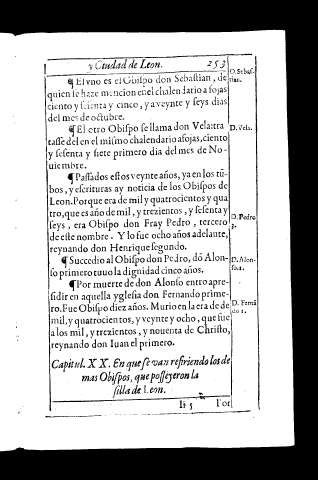 y Ciudad de Leon. 253
¶ El vno es el Obispo don Sebastian, de
quien se haze mencion enel chalendario a fojas
ciento y sesenta y cinco, y a veynte y seys dias
del mes de octubre.
¶ El otro Obispo se llama don Vela: tra
tasse del en el mismo chalendario a fojas, ciento
y sesenta y siete primero dia del mes de No-
uiembre.
¶ Passados estos veynte años, ya en los tū-
bos, y escrituras ay noticia de los Obispos de
Leon. Porque era de mil y quatrocientos y qua
tro, que es año de mil, y trezientos, y sesenta y
seys, era Obispo don Fray Pedro, tercero
de este nombre. Y lo fue ocho años adelante,
reynando don Henrique segundo.
¶ Succedio al Obispo don Pedro, dō Alon-
so primero tuuo la dignidad cinco años.
¶ Por muerte de don Alonso entro apre-
sidir en aquella yglesia don Fernando prime-
ro. Fue Obispo diez años. Murio en la era de de
mil, y quatrocientos, y veynte y ocho, que fue
a los mil, y trezientos, y nouenta de Christo,
reynando don Iuan el primero.
Capitul. XX. En que se van refiriendo los de
mas Obispos, que posseyeron la
silla de Leon.
Ii 5 Por
D. Sebas-
tian.
D. Vela.
D. Pedro
3.
D. Alon-
so. 1.
D. Fernā
do 1.